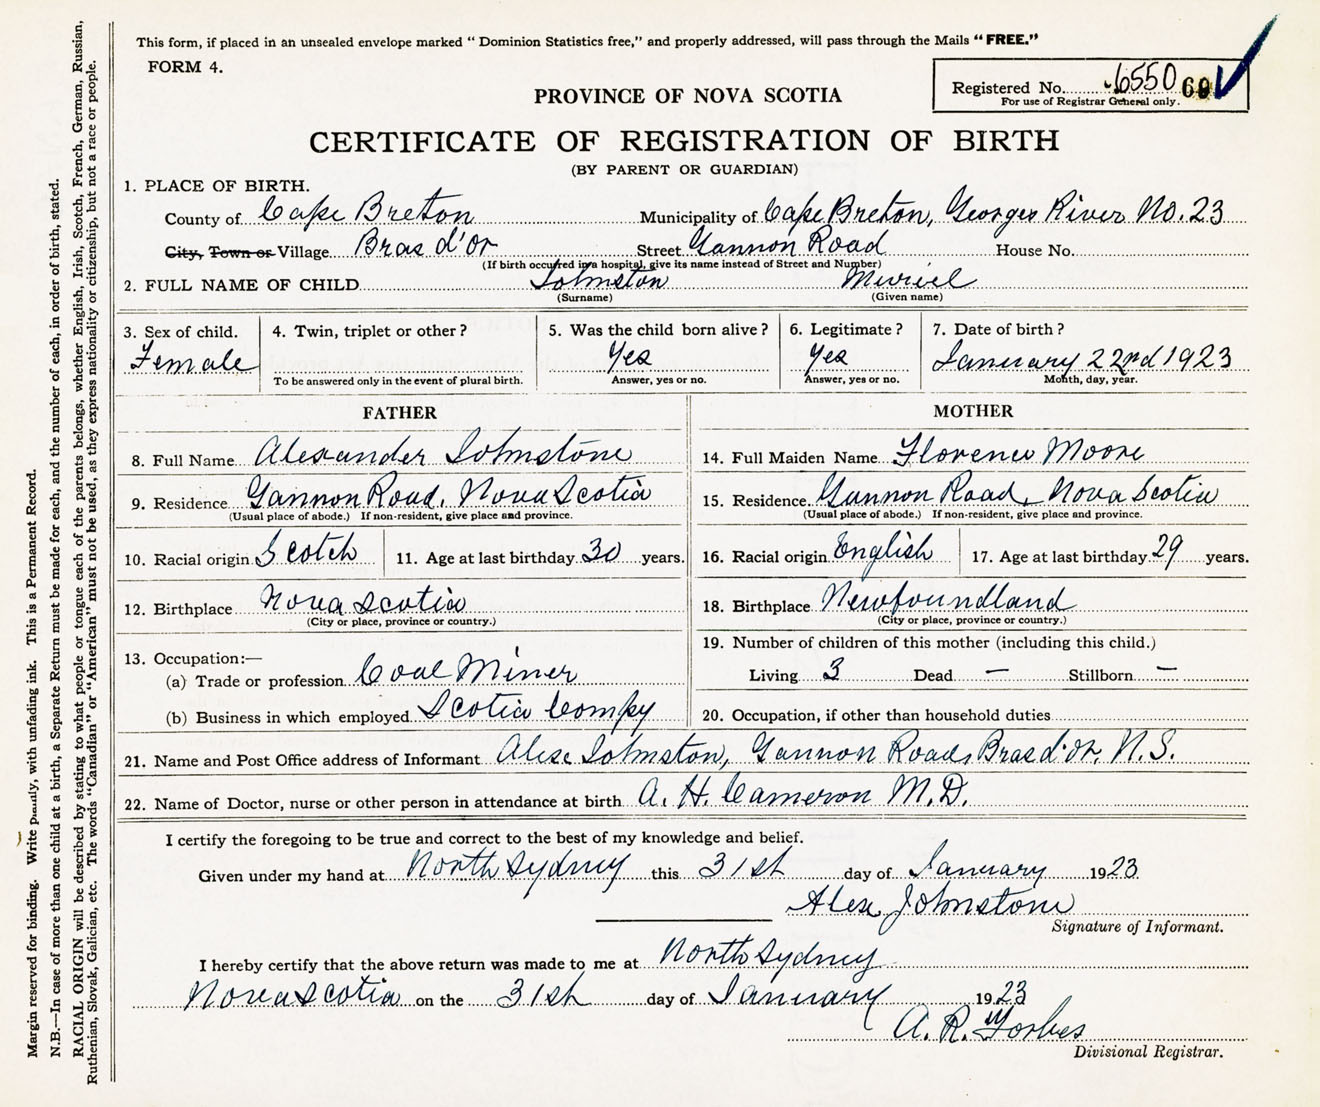 This form, if placed in an unsealed envelope marked "Dominion Statistics free," and properly addressed, will pass through the Mails "FREE."
FORM 4.
Registered No. 6550
For use of Registrar General only.
PROVINCE OF NOVA SCOTIA
CERTIFICATE OF REGISTRATION OF BIRTH
(BY PARENT OR GUARDIAN)
1. PLACE OF BIRTH.
County of Cape Breton Municipality of Cape Breton, Georges River No. 23
City, Town or Village Bras d'or Street Gannon Road House No.
(If birth occurred in a hospital, give its name instead of Street and Number)
2. FULL NAME OF CHILD Johnston Muriel
(Surname) (Given name)
3. Sex of child. 4. Twin, triplet or other? 5. Was the child born alive? 6. Legitimate? 7. Date of birth?
Female Yes Yes January 22nd 1923
To be answered only in the event of plural birth. Answer, yes or no. Answer, yes or no. Month, day, year.
FATHER MOTHER
8. Full Name Alexander Johnstone 14. Full Maiden Name Florence Moore
9. Residence Gannon Road, Nova Scotia 15. Residence Gannon Road, Nova Scotia
(Usual place of abode.) If non-resident, give place and province. (Usual place of abode.) If non-resident, give place and province.
10. Racial origin Scotch 11. Age at last birthday 30 years. 16. Racial origin English 17. Age at last birthday 29 years.
12. Birthplace Nova Scotia 18. Birthplace Newfoundland
(City or place, province or country.) (City or place, province or country.)
19. Number of children of this mother (including this child.)
13. Occupation:—
(a) Trade or profession Coal Miner Living 3 Dead — Stillborn —
(b) Business in which employed Scotia Compy 20. Occupation, if other than household duties
21. Name and Post Office address of Informant Alex Johnston, Gannon Road, Bras d'or, N.S.
22. Name of Doctor, nurse or other person in attendance at birth A. H. Cameron M.D.
I certify the foregoing to be true and correct to the best of my knowledge and belief.
Given under my hand at North Sydney this 31st day of January 1923
Alex Johnstone
Signature of Informant.
I hereby certify that the above return was made to me at North Sydney
Nova Scotia on the 31st day of January 1923
A. R. Forbes
Divisional Registrar.
Margin reserved for binding. Write plainly, with unfading ink. This is a Permanent Record.
N.B.—In case of more than one child at a birth, a Separate Return must be made for each, and the number of each, in order of birth, stated.
RACIAL ORIGIN will be described by stating to what people or tongue each of the parents belongs, whether English, Irish, Scotch, French, German, Russian,
Ruthenian, Slovak, Galician, etc. The words "Canadian" or "American" must not be used, as they express nationality or citizenship, but not a race or people.